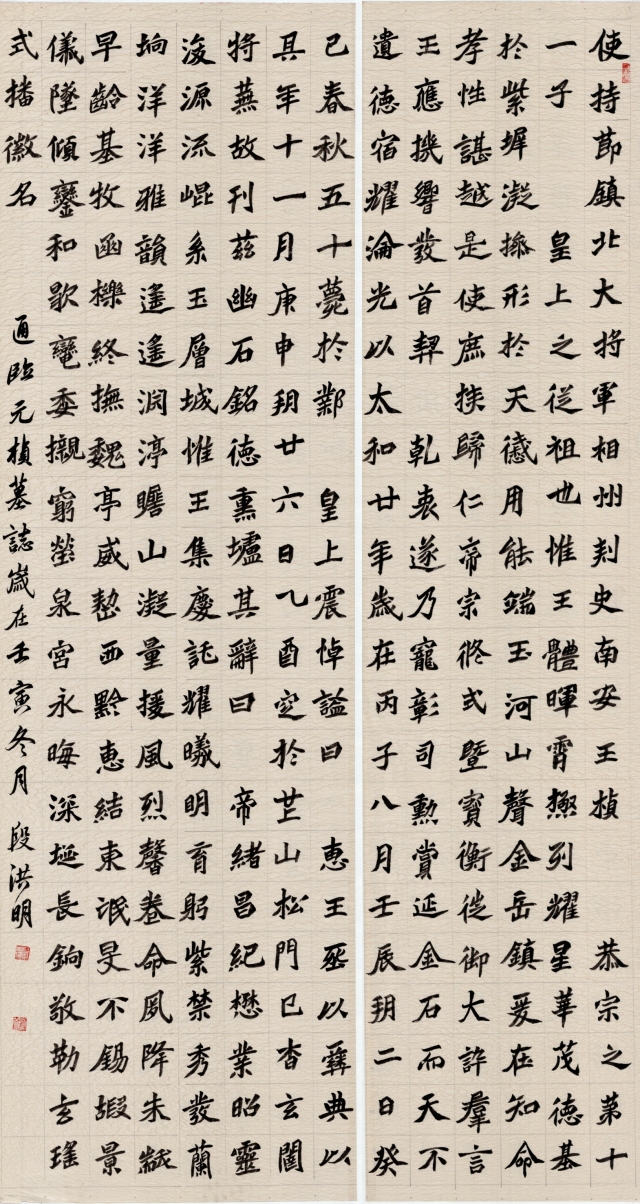 使持節鎮北大将軍相州刾史南安王楨 恭宗之第十
一子 皇上之從祖也惟王體暉霄極列耀星華茂德基
於紫墀凝操形於天感用能端玉河山聲金岳鎮爰在知命
孝性諶越是使庶族歸仁帝宗攸式暨寶衡徙御大訊羣言
王應機響發首契 乾衷遂乃寵彰司勲賞延金石而天不
遺德宿耀淪光以太和廿年歲在丙子八月壬辰朔二日癸
巳春秋五十薨於鄴 皇上震悼謚曰 惠王塟以彝典以
其年十一月庚申朔廿六日乙酉窆於芒山松門已杳玄闥
将蕪故刊茲幽石銘德熏壚其辭曰 帝緒昌紀懋業昭靈
浚源流崐系玉層城惟王集慶託耀曦明育躬紫禁秀發蘭
坰洋洋雅韻遙遙淵渟瞻山凝量援風烈馨卷命夙降未黻
早齡基牧函櫟終撫魏亭威慹西黔惠結東泯旻不錫嘏景
儀墜傾鑾和歇委櫬窮塋泉宮永晦深埏長鍧敬勒玄瑤
式播徽名
通臨元楨墓誌歲在壬寅冬月 段洪明